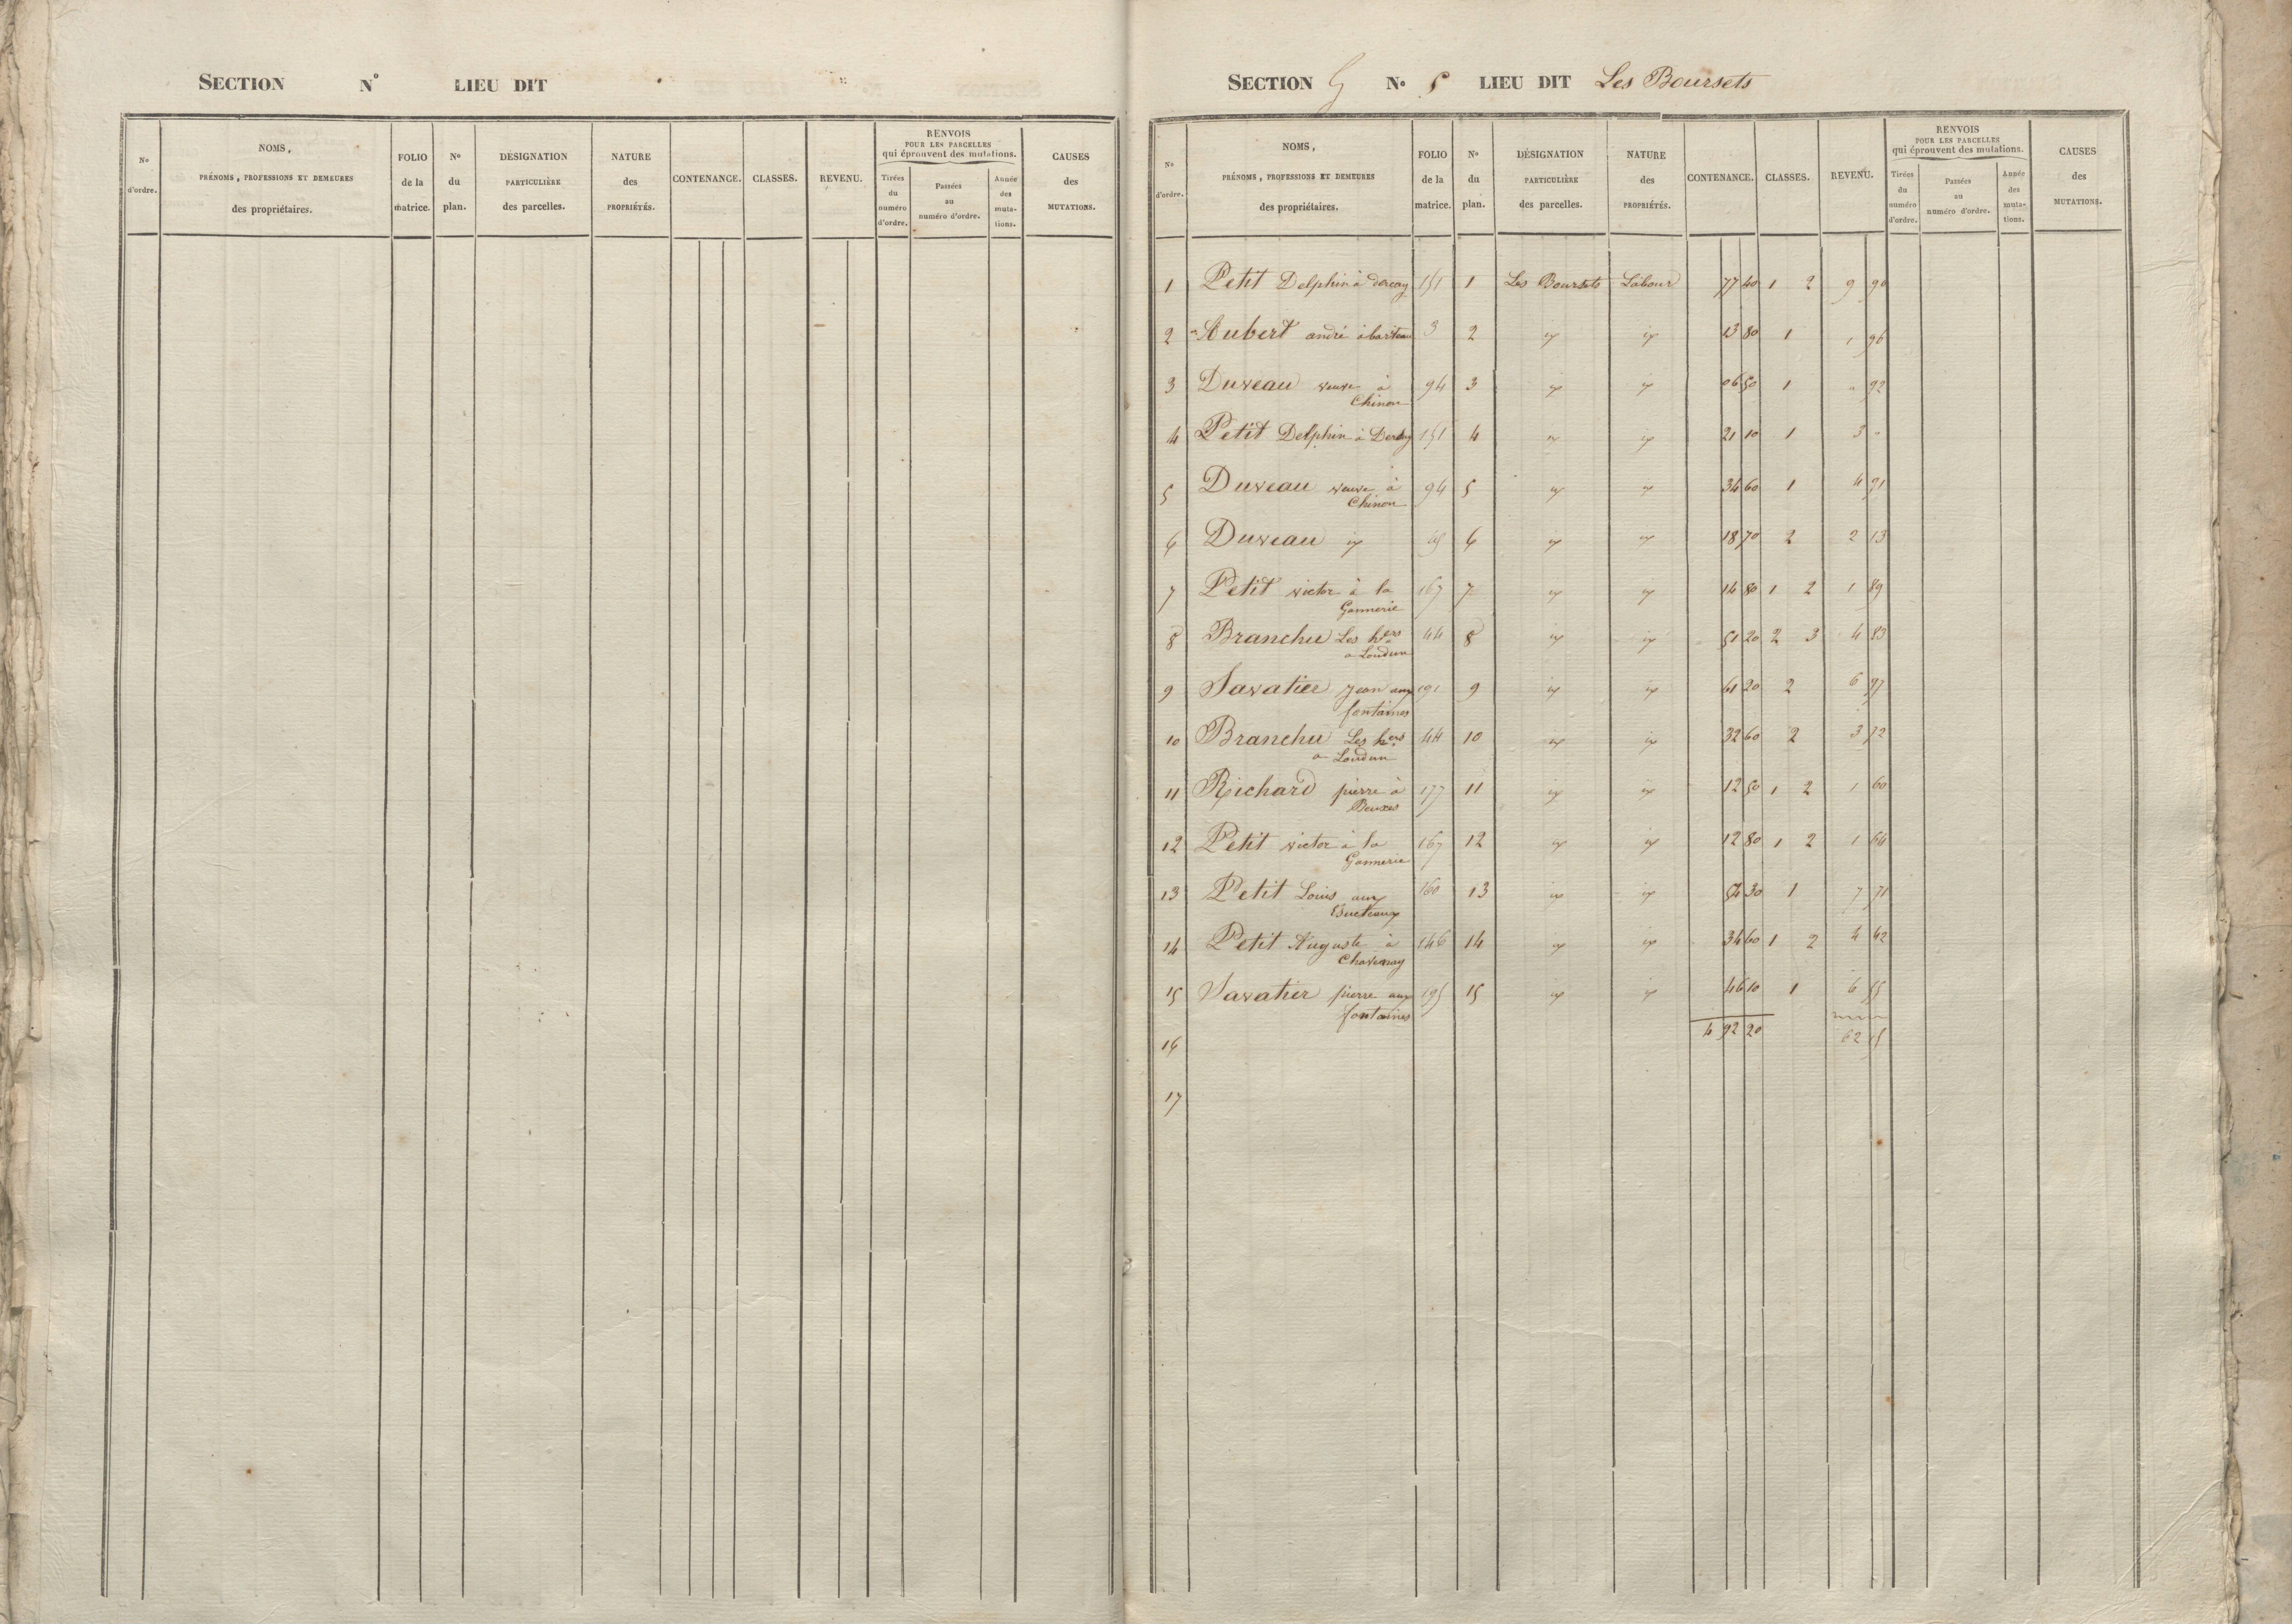 SECTION N° LIEU DIT
N° d'ordre.
NOMS,
PRÉNOMS, PROFESSIONS ET DEMEURES
des propriétaires.
FOLIO de la matrice.
N° du plan.
DÉSIGNATION PARTICULIÈRE des parcelles.
NATURE des PROPRIÉTÉS.
CONTENANCE.
CLASSES.
REVENU.
RENVOIS
POUR LES PARCELLES
qui éprouvent des mutations.
Tirées du numéro d'ordre.
Passées au numéro d'ordre.
Année des muta-tions.
CAUSES des MUTATIONS.
SECTION G N° 5 LIEU DIT Les Boursets
N° d'ordre.
NOMS,
PRÉNOMS, PROFESSIONS ET DEMEURES
des propriétaires.
FOLIO de la matrice.
N° du plan.
DÉSIGNATION PARTICULIÈRE des parcelles.
NATURE des PROPRIÉTÉS.
CONTENANCE.
CLASSES.
REVENU.
RENVOIS
POUR LES PARCELLES
qui éprouvent des mutations.
Tirées du numéro d'ordre.
Passées au numéro d'ordre.
Année des muta-tions.
CAUSES des MUTATIONS.
1 Petit Delphin à dercay 151 1 Les Boursets Labour 77 40 1 2 9 90
2 Aubert andré 3 2 13 80 1 1 96
3 Duveau veuve à 94 3 06 50 1 " 92
Chinon
4 Petit Delphin à 151 4 21 10 1 3 "
5 Duveau veuve à 94 5 34 60 1 4 91
Chinon
6 Duveau 6 18 70 2 2 13
7 Petit victor à la 167 7 14 80 1 2 1 89
Gannerie
8 Branchu Les hers 44 8 51 20 2 3 4 83
a Loudun
9 Savatier jean aux 191 9 61 20 2 6 97
fontaines
10 Branchu Les hers 44 10 32 60 2 3 72
a Loudun
11 Richard pierre à 177 11 12 50 1 2 1 60
Beuxes
12 Petit victor à la 167 12 12 80 1 2 1 64
Gannerie
13 Petit Louis aux 160 13 54 30 1 7 71
Bucteaux
14 Petit Auguste à 146 14 34 60 1 2 4 42
Chavenay
15 Savatier pierre aux 195 15 46 10 1 6 55
fontaines
16 4 92 20 62 15
17